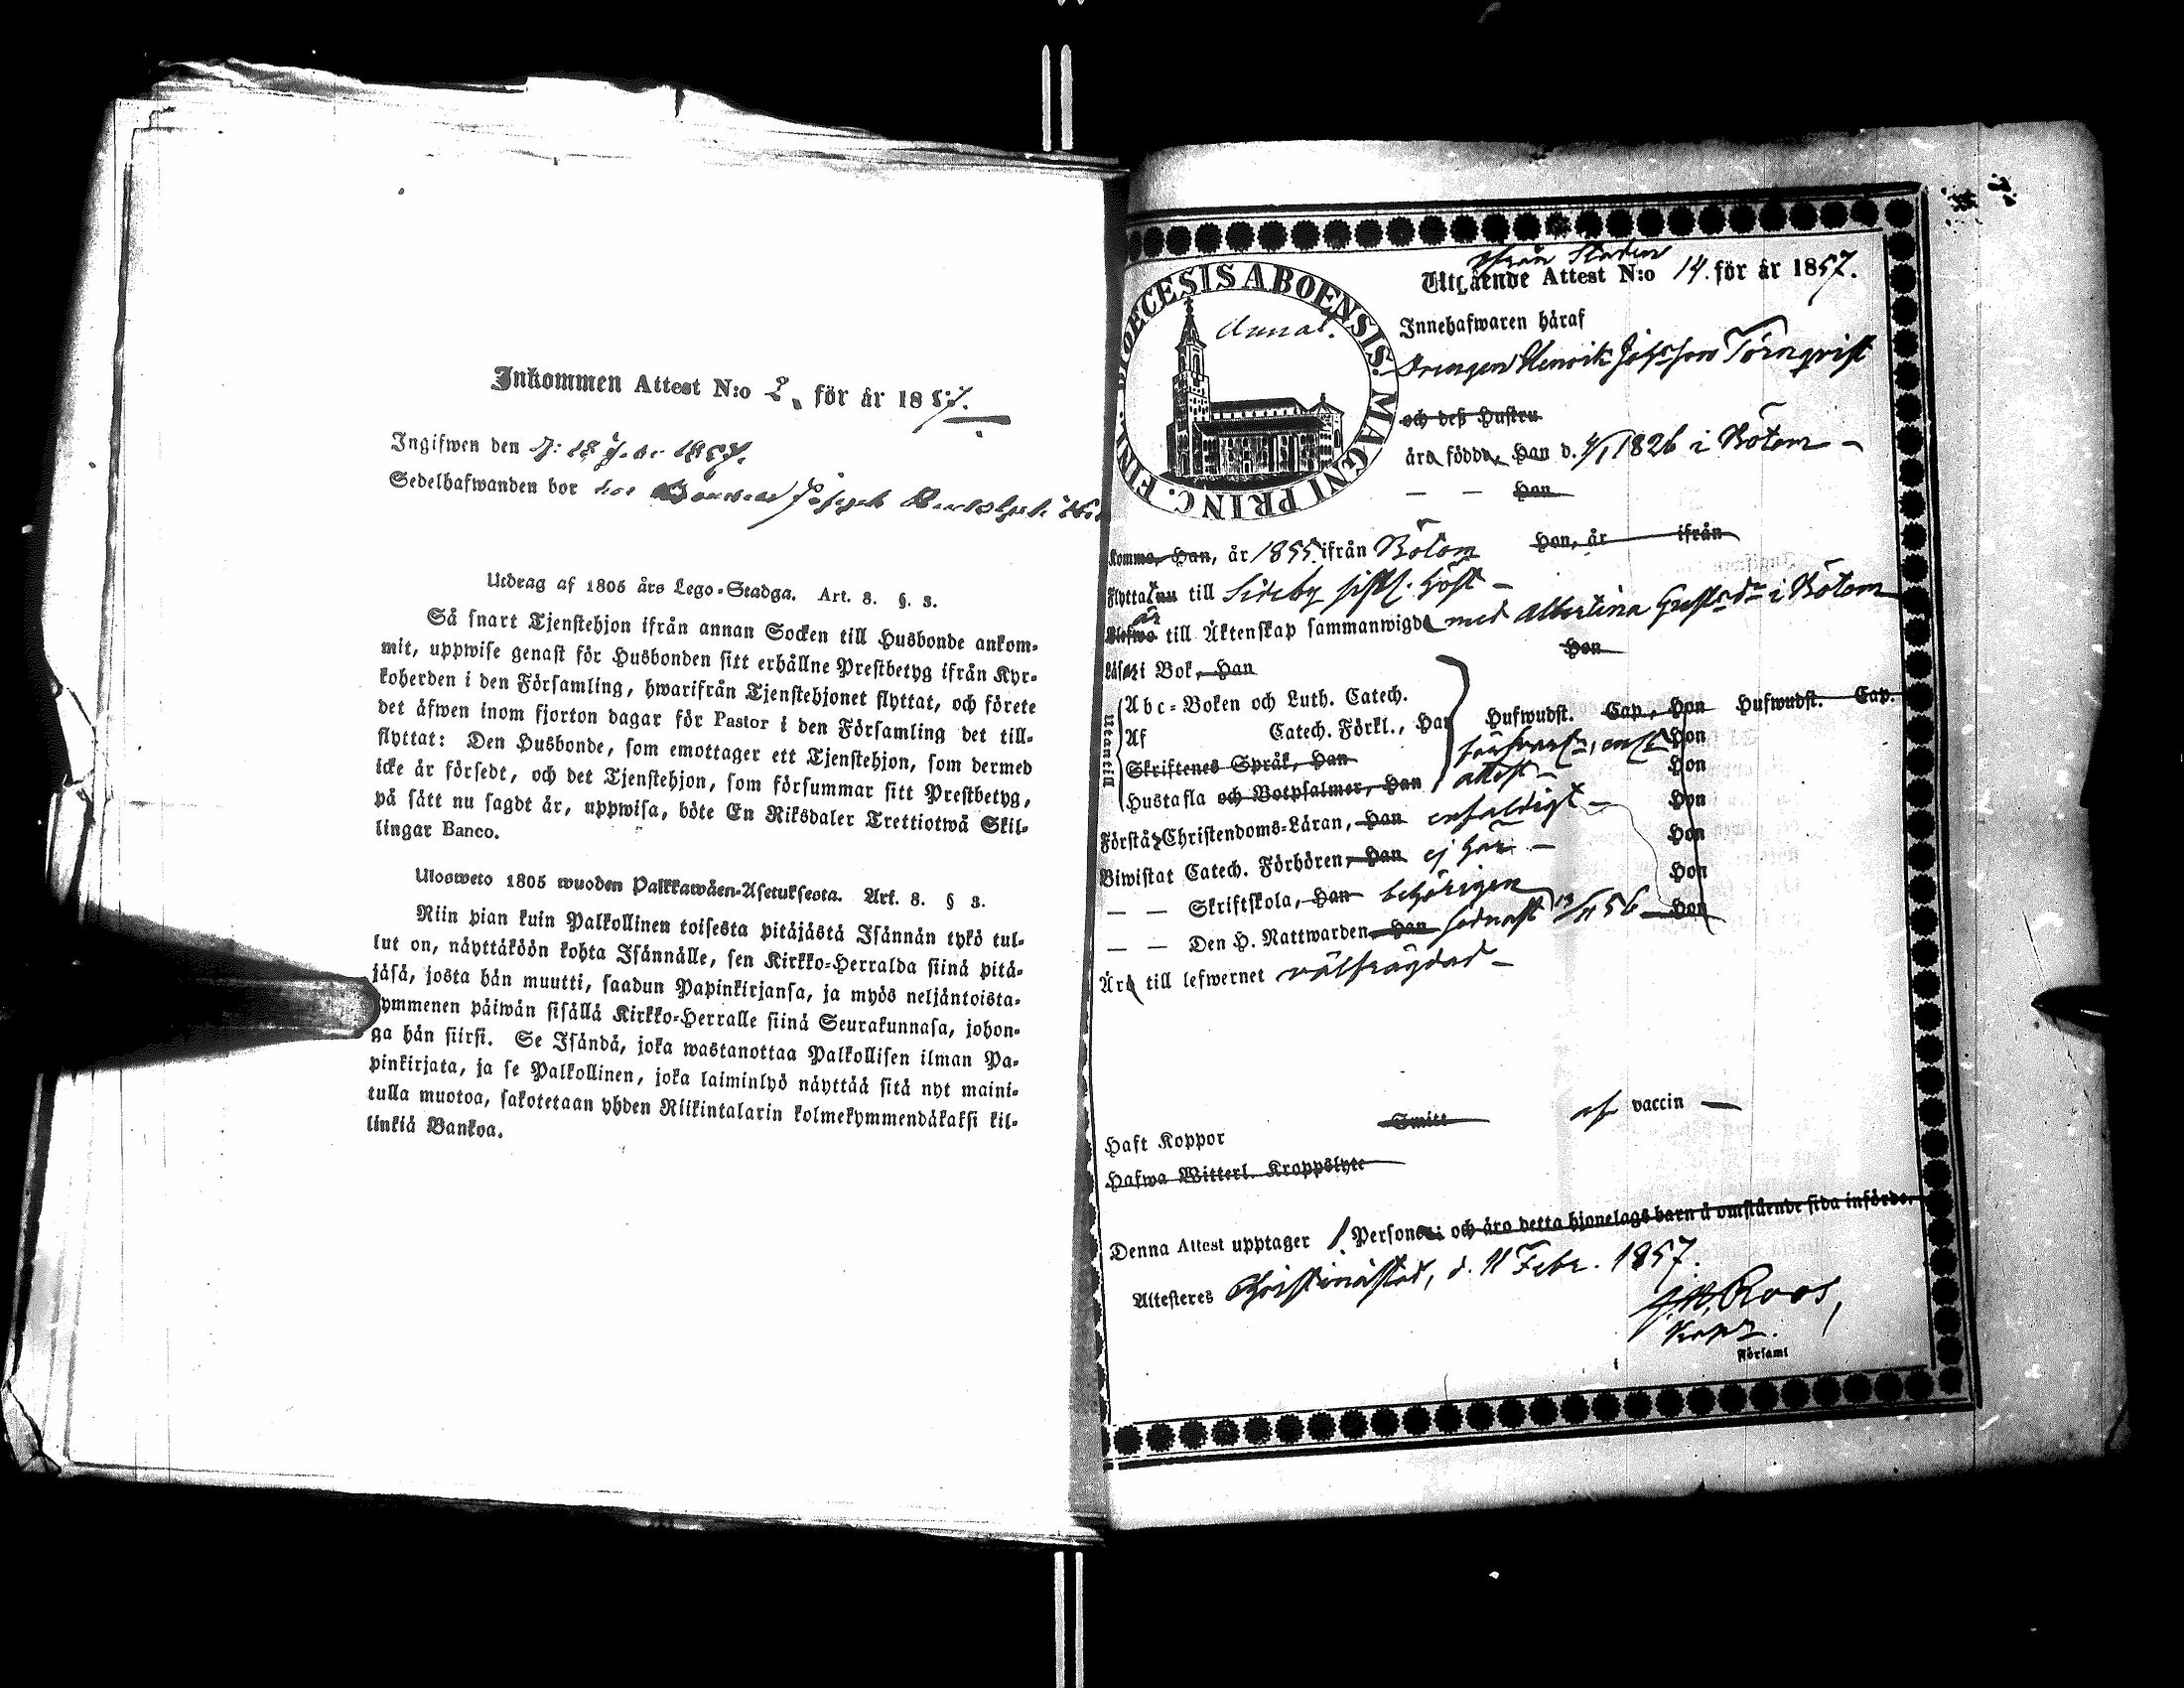 Inkommen Attest N:o 2. för år 1857.
Ingifwen den 1857.
Sedelhafwanden bor hos Bonden Joseph
Utdrag af 1805 års Lego-Stadga. Art. 8. §. 3.
Så snart Tjenstehjon ifrån annan Socken till Husbonde ankom-
mit, uppwise genast för Husbonden sitt erhållne Prestbetyg ifrån Kyr-
koherden i den Församling, hwarifrån Tjenstehjonet flyttat, och förete
det äfwen inom fjorton dagar för Pastor i den Församling det till-
flyttat: Den Husbonde, som emottager ett Tjenstehjon, som dermed
icke är försedt, och det Tjenstehjon, som försummar sitt Prestbetyg,
på sätt nu sagdt är, uppwisa, böte En Riksdaler Trettiotwå Skil-
lingar Banco.
Ulosweto 1805 wuoden Palkkawäen-Asetuksesta. Art. 8. § 3.
Niin pian kuin Palkollinen toisesta pitäjästä Isännän tykö tul-
lut on, näyttäköön kohta Isännälle, sen Kirkko-Herralda siinä pitä-
jäsä, josta hän muutti, saadun Papinkirjansa, ja myös neljäntoista-
kymmenen päiwän sisällä Kirkko-Herralle siinä Seurakunnasa, johon-
ga hän siirsi. Se Isändä, joka wastanottaa Palkollisen ilman Pa-
pinkirjata, ja se Palkollinen, joka laiminlyö näyttää sitä nyt maini-
tulla muotoa, sakotetaan yhden Riikintalarin kolmekymmendäkaksi kil-
linkiä Bankoa.
DIOECESIS ABOENSIS. MAGNI PRINC. FINL.
ifrån Staden
Utgående Attest N:o 14. för år 1857.
Innehafwaren häraf
Drengen Henrik Johsson Törnqvist
och deß Hustru
äro födda, Han d. 4/1 1826 i Bötom –
— — Hon
Komme, Han, år 1855 ifrån Bötom Hon, år ifrån
Flytta nu till Sideby sistl. höst –
är
Blefwo till Äktenskap sammanwigde med Albertina Gustafsdr i Bötom
Läsa i Bok, Han Hon
Utantill
Abc-Boken och Luth. Catech.
Af Catech. Förkl., Han Hufwudst. Cap., Hon Hufwudst. Cap.
Skriftenes Språk, Han Hon
Hustafla och Botpsalmer, Han attest – Hon
Förstå Christendoms-Läran, Han enfaldigt – Hon
Biwistat Catech. Förhören, Han ej här – Hon
— — Skriftskola, Han behörigen Hon
— — Den H. Nattwarden, Han sednast 56 Hon
Äro till lefwernet välfrägdad –
Haft Koppor Smitt af vaccin —
Hafwa Witterl. Kroppslyte
Denna Attest upptager 1 Person: och äro detta hjonelags barn å omstående sida införde.
Attesteres Christinästad, d. 11 Febr. 1857.
Roos,
Församl